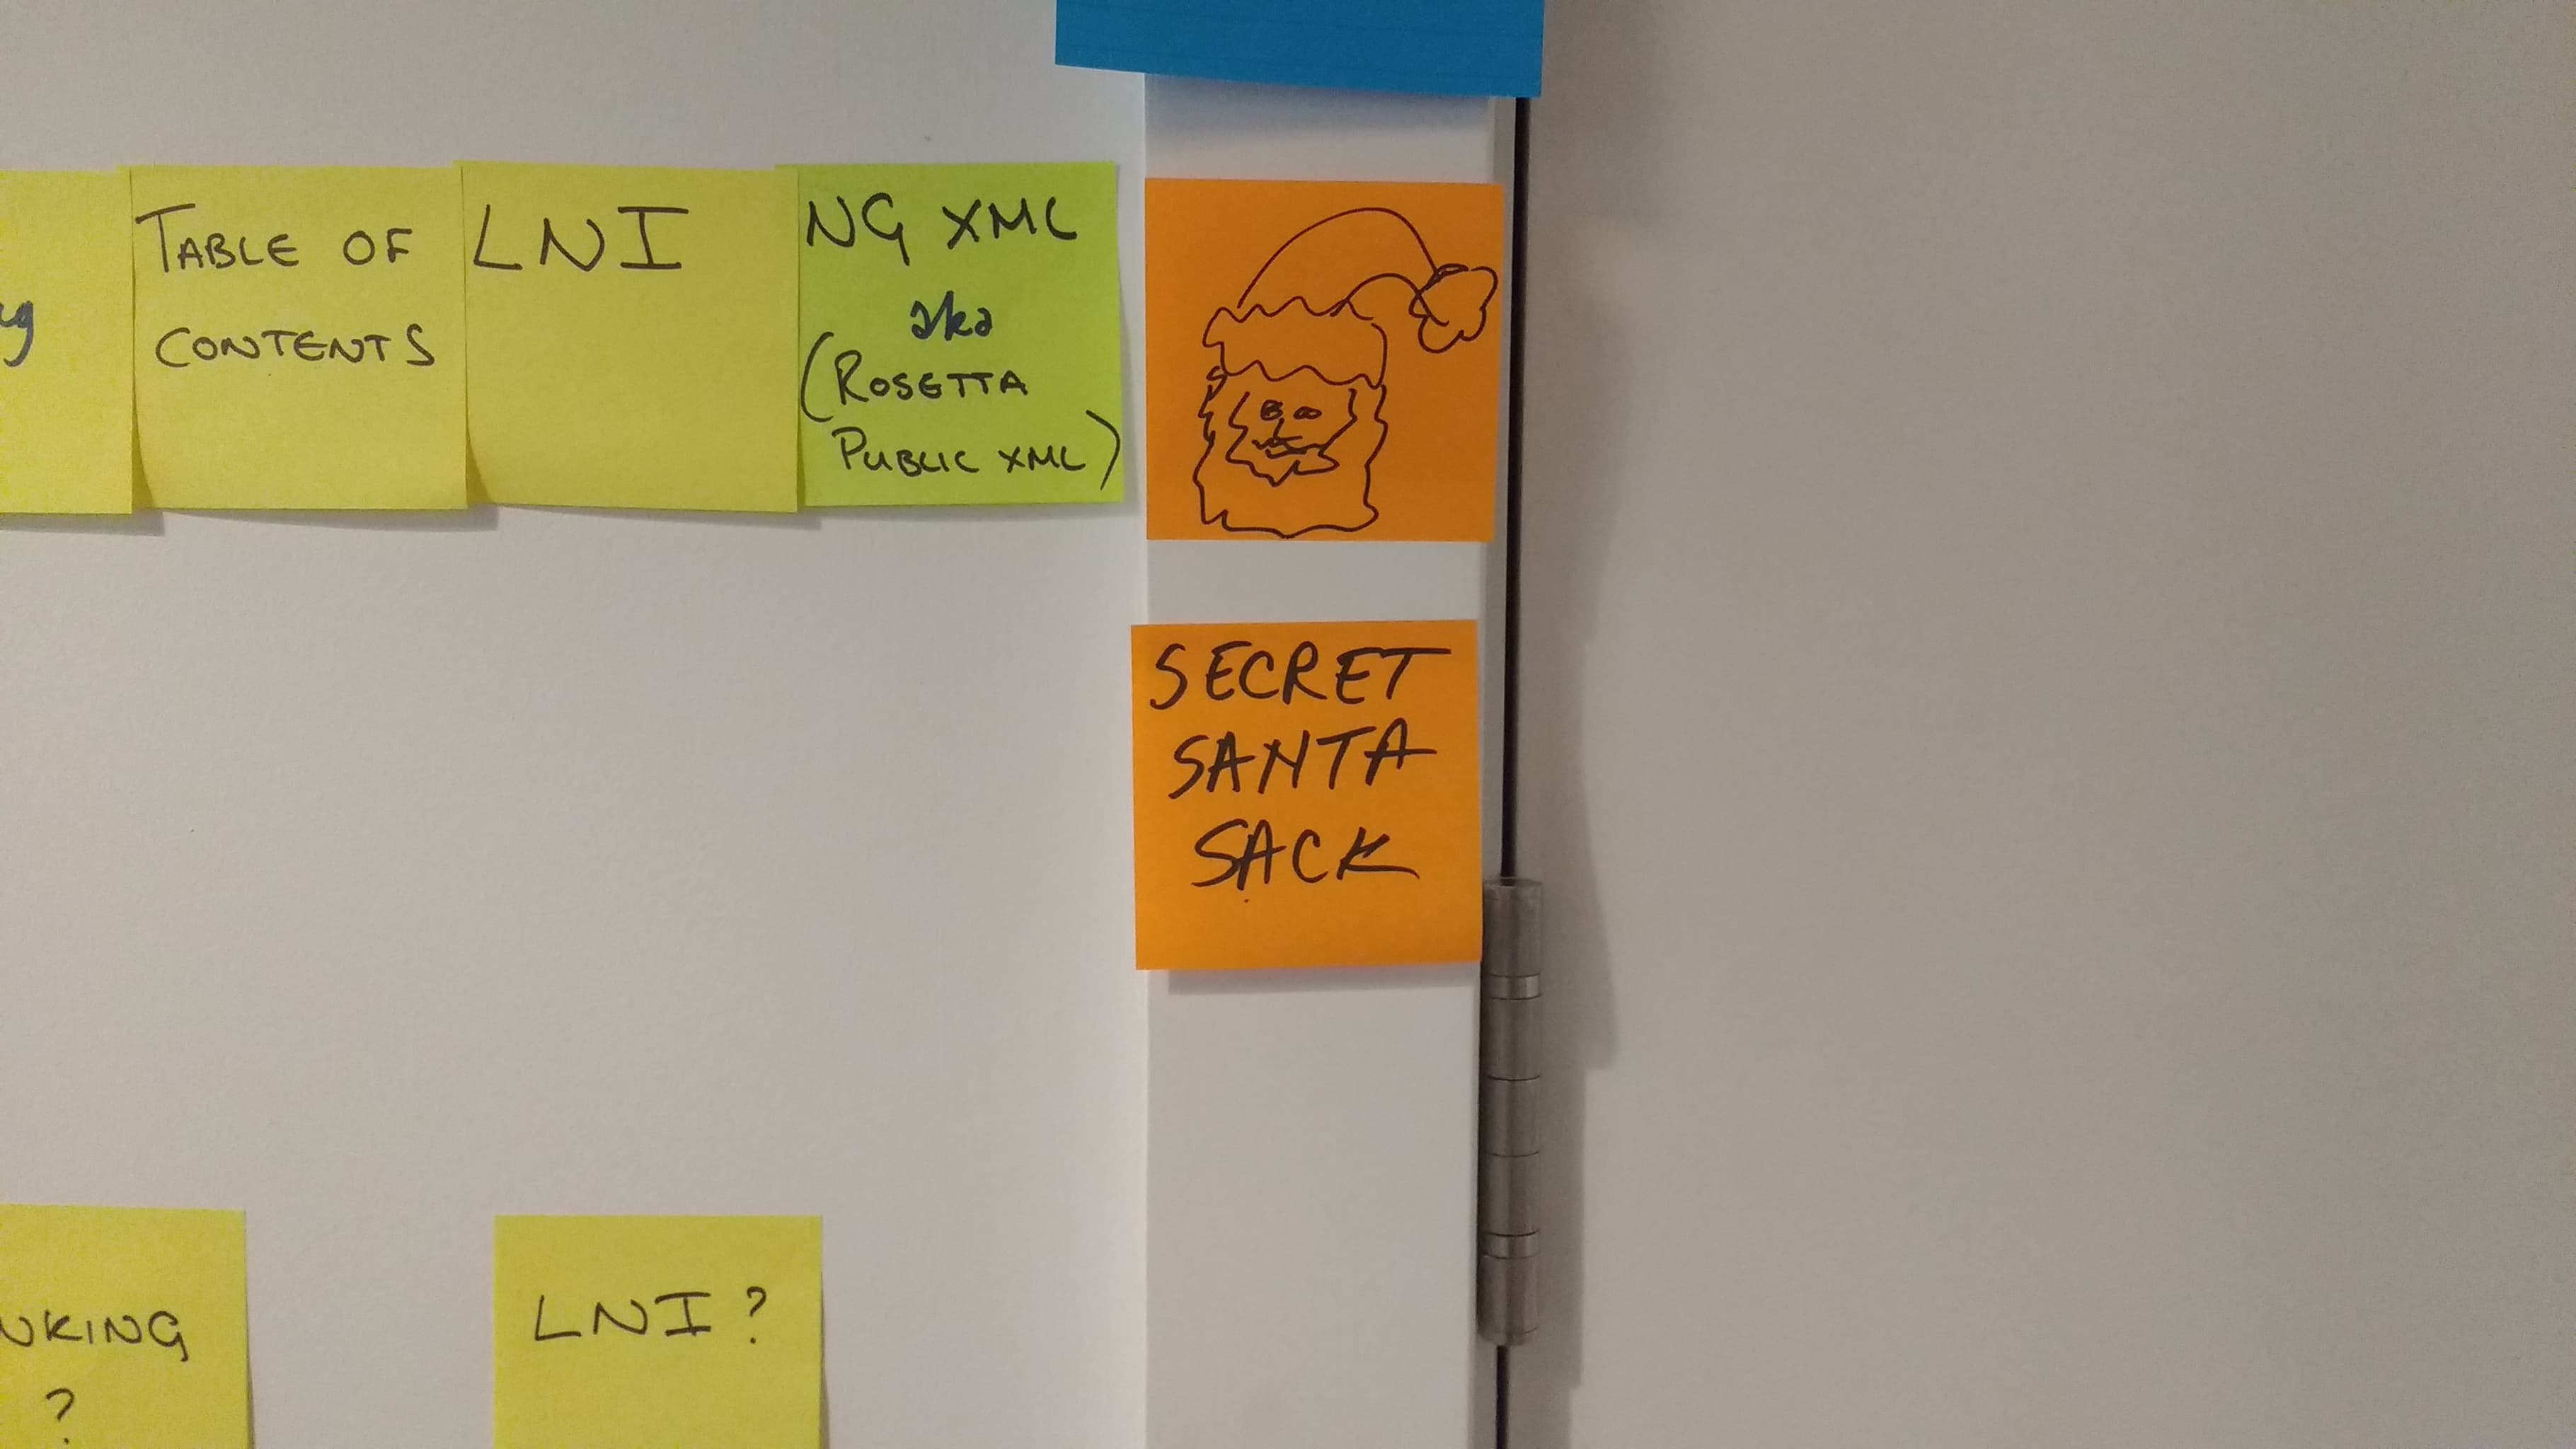 TABLE OF
CONTENTS
LNI
NG XML
aka
(ROSETTA
PUBLIC XML)
SECRET
SANTA
SACK
?
LNI?